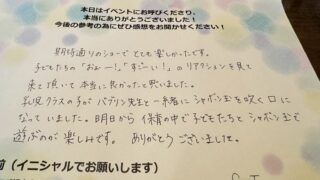 本日はイベントにお呼びくださり、
本当にありがとうございました！
今後の参考の為にぜひ感想をお聞かせください！
期待通りのショーでとても楽しかったです。
子どもたちの「おぉー!」「すごーい!」のリアクションを見て
来て頂いて本当に良かったと思いました。
乳児クラスの子がバブリン先生と一緒にシャボン玉を吹く口に
なっていました。明日から保育の中で子どもたちとシャボン玉で
遊ぶのが楽しみです。ありがとうございました。
前（イニシャルでお願いします）